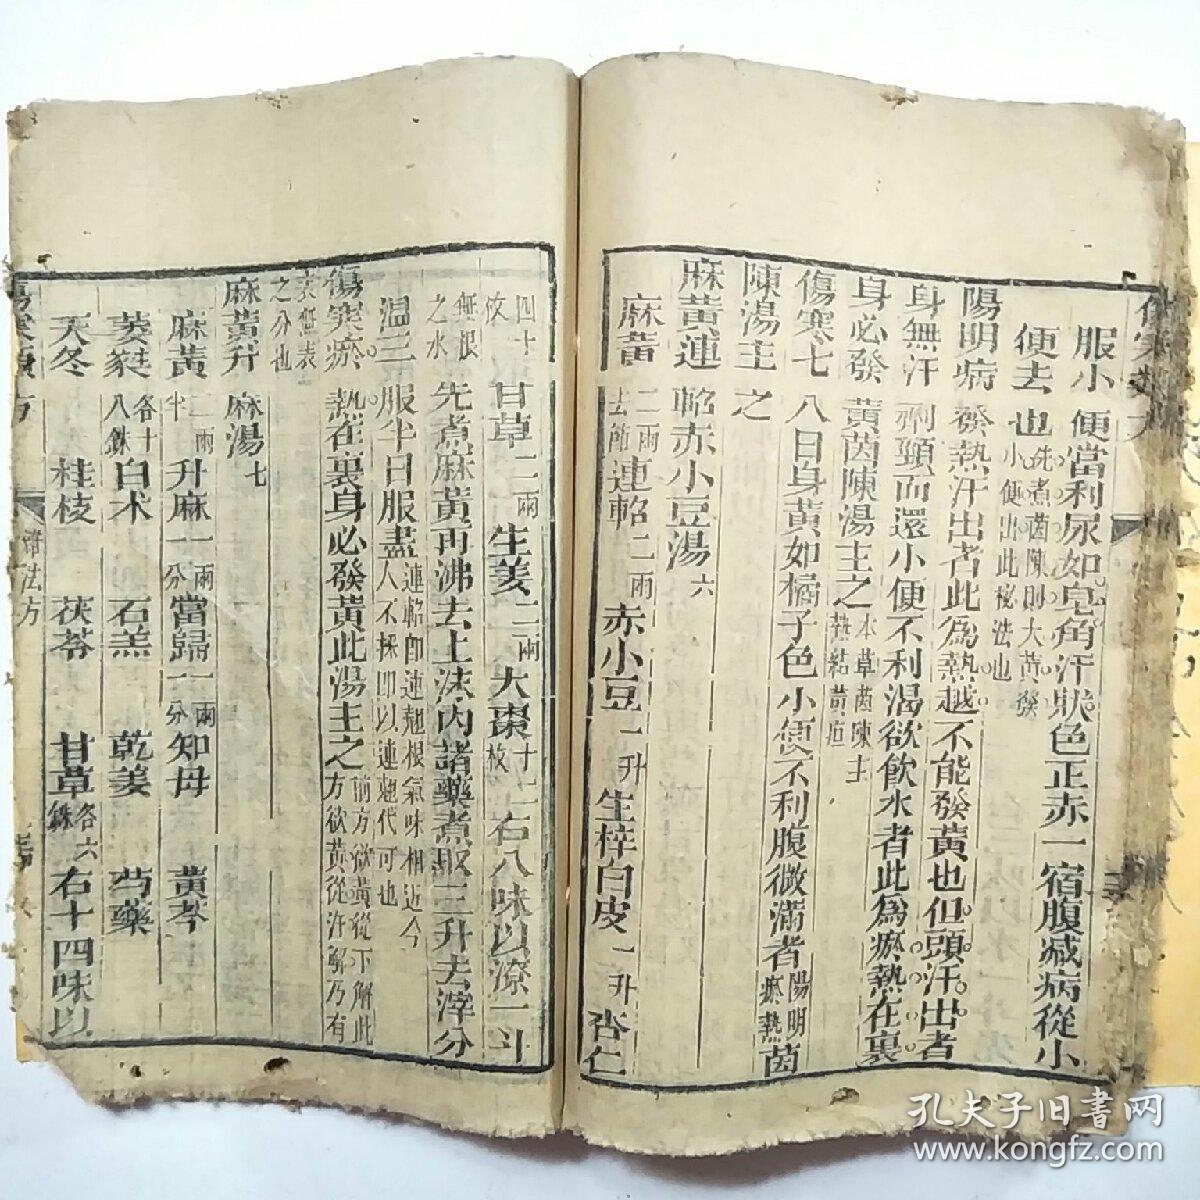 傷寒類方
服小便當利尿如皂角汁狀色正赤一宿腹減病從小
便去也先煮茵陳則大黃從小便出此秘法也
陽明病發熱汗出者此為熱越不能發黃也但頭汗出者
身無汗劑頸而還小便不利渴欲飲水者此為瘀熱在裏
身必發黃茵陳湯主之本草茵陳主熱結黃疸
傷寒七八日身黃如橘子色小便不利腹微滿者陽明瘀熱茵
陳湯主之
麻黃連軺赤小豆湯六
麻黃二兩去節連軺二兩赤小豆一升生梓白皮一升杏仁
四十枚甘草二兩生姜二兩大棗十二枚右八味以潦一斗
無根之水先煮麻黃再沸去上沫內諸藥煮取三升去滓分
溫三服半日服盡連軺即連翹根氣味相近今人不採即以連翹代可也
傷寒瘀熱在裏身必發黃此湯主之前方欲黃從下解此方欲黃從汗解乃有
表無表之分也
麻黃升麻湯七
麻黃二兩半升麻一兩一分當歸一兩一分知母黃芩
葵蕤各十八銖白术石羔乾姜芍藥
天冬桂枝茯苓甘草各六銖右十四味以
傷寒類方
諸法方
孔夫子旧书网
www.kongfz.com